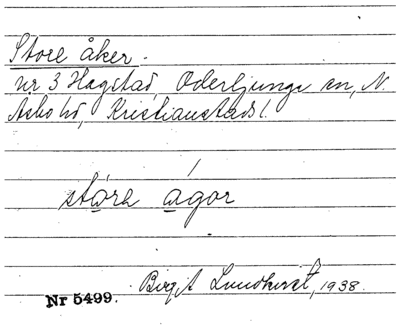 Store åker.
nr 3 Hagstad, Oderljunga sn, N.
Åsbo hd, Kristianstads l.
stọ́rḁ ágọr
Birgit Lundkvist, 1938.
Nr 5499.